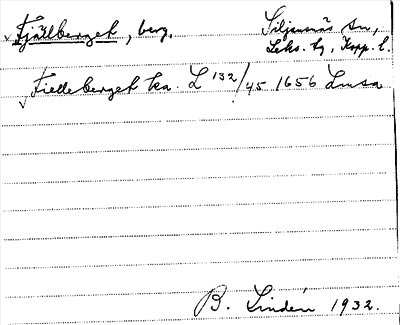 Fjällberget, berg.
Siljansnäs sn,
Leks. tg, Kopp. l.
Fiedeberget ka. L 132/45 1656 Lmsa
B. Lindén 1932.